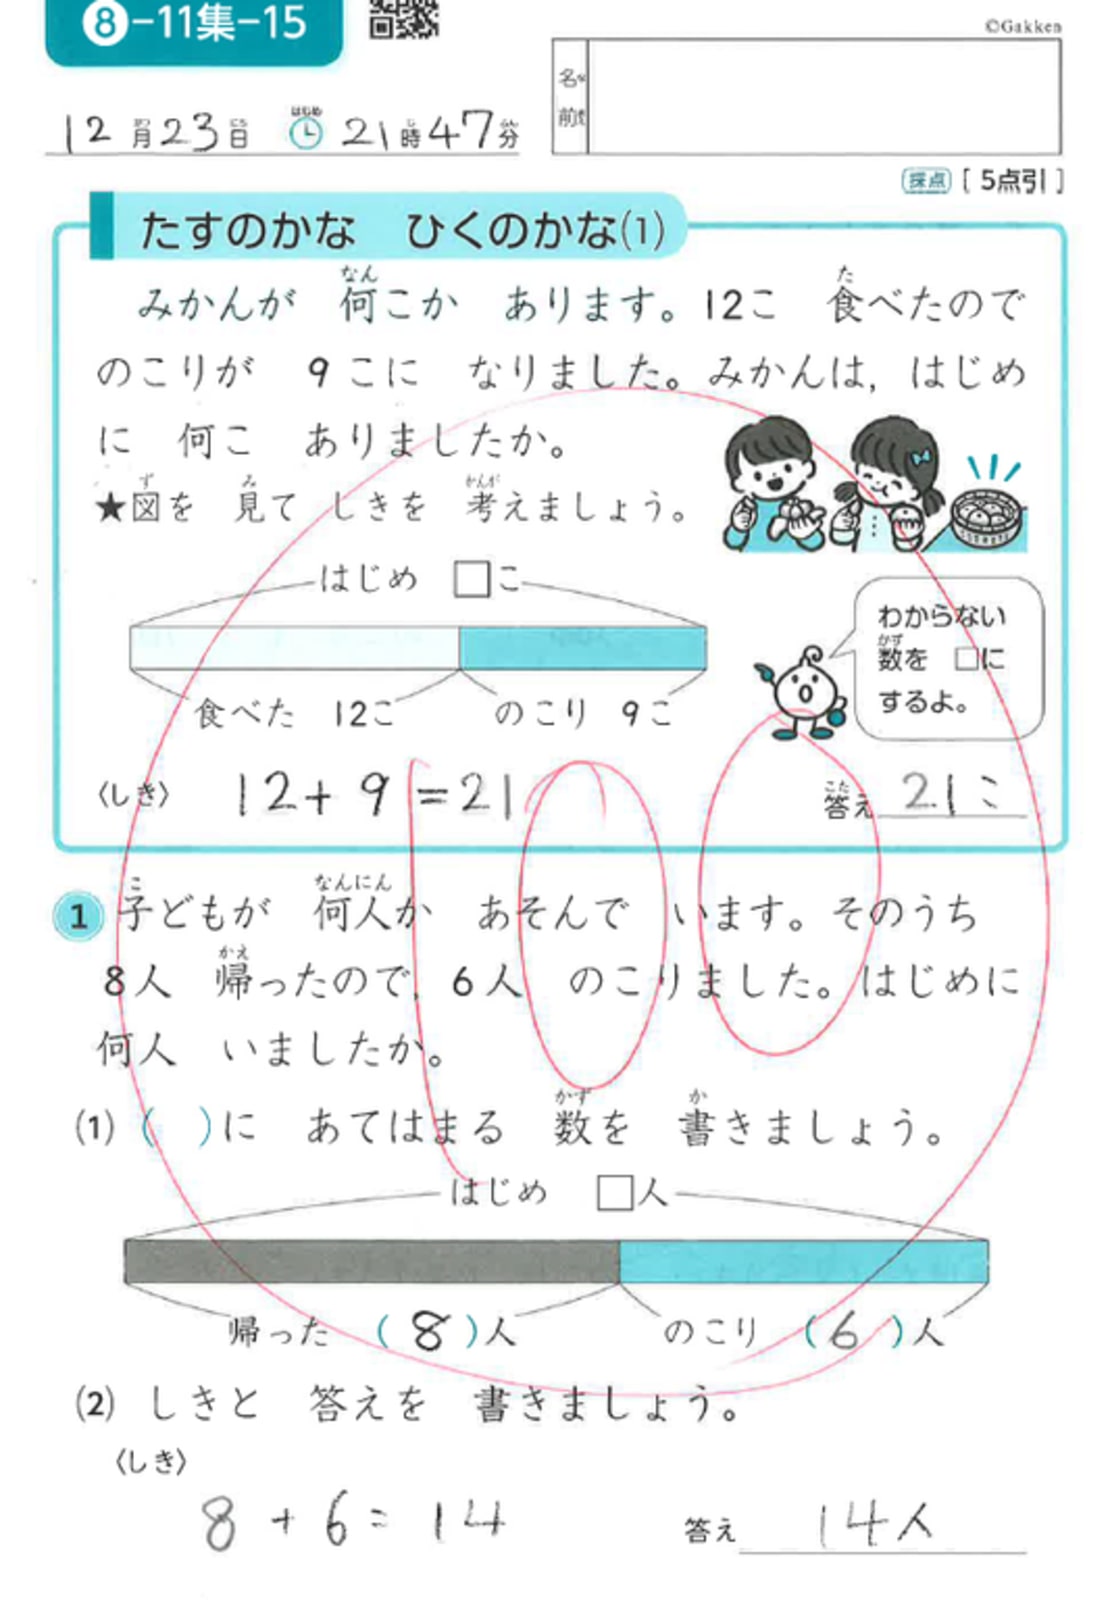 8-11集-15
©Gakken
名前
な まえ
12月23日 はじめ 21時47分
採点 [5点引]
たすのかな ひくのかな(1)
みかんが 何こか あります。12こ 食べたので
のこりが 9こに なりました。みかんは,はじめ
に 何こ ありましたか。
★図を 見て しきを 考えましょう。
はじめ □こ
わからない
数を □に
するよ。
食べた 12こ のこり 9こ
〈しき〉 12+9=21 答え 21こ
100
1 子どもが 何人か あそんで います。そのうち
8人 帰ったので,6人 のこりました。はじめに
何人 いましたか。
(1) ( )に あてはまる 数を 書きましょう。
はじめ □人
帰った (8)人 のこり (6)人
(2) しきと 答えを 書きましょう。
〈しき〉
8+6=14 答え 14人